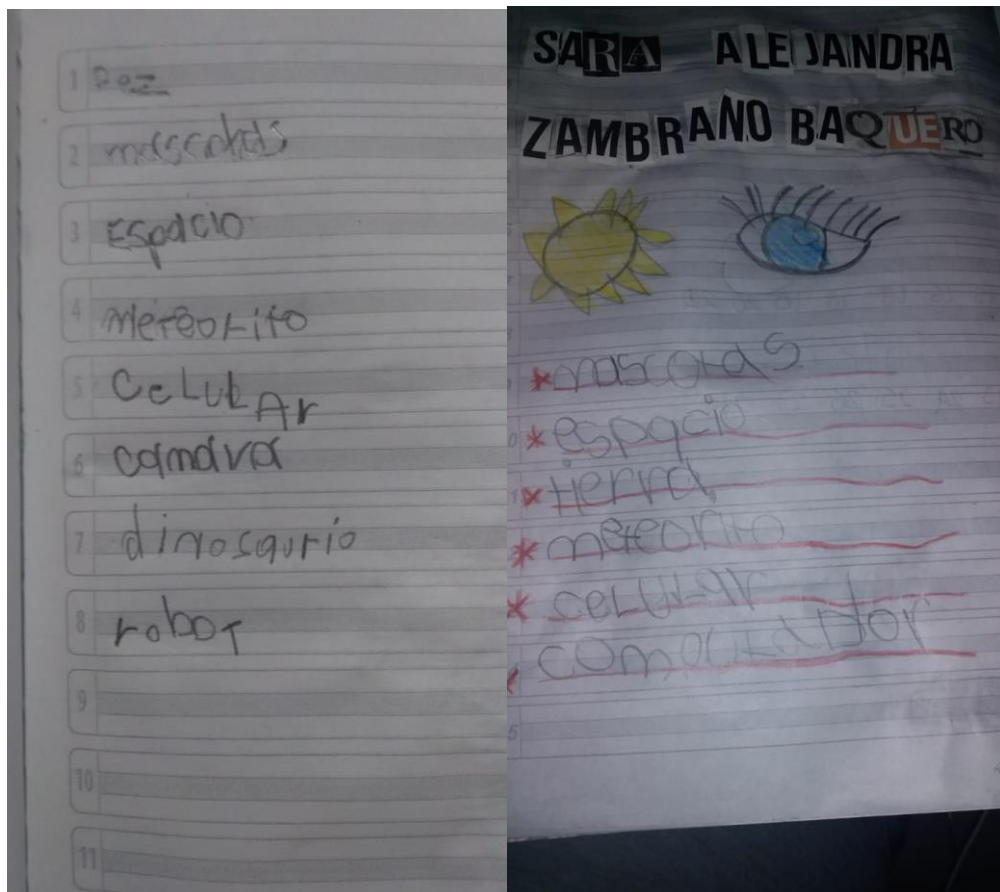 1 Pez
2 mascotas
3 Espacio
4 meteorito
5 CeLuLAr
6 camara
7 dinosaurio
8 roboT
9
10
11
SARA ALEJANDRA
ZAMBRANO BAQUERO
*mascotas
*espacio
*tierra
*meteorito
*ceLuLar
computador